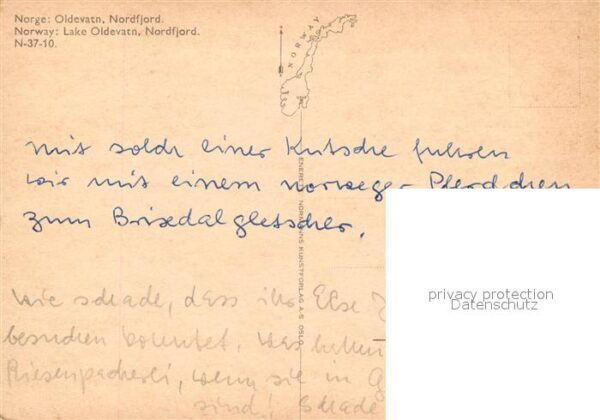 Norge: Oldevatn, Nordfjord.
Norway: Lake Oldevatn, Nordfjord.
N-37-10.
NORWAY
mit solch einer Kutsche fuhren
wir mit einem norweger Pferdchen
zum Brixdalgletscher.
NORMANNS KUNSTFORLAG A/S OSLO
Wie schade, dass ihr Else
besuchen konntet, was
wenn sie in
sind! Schade
privacy protection
Datenschutz